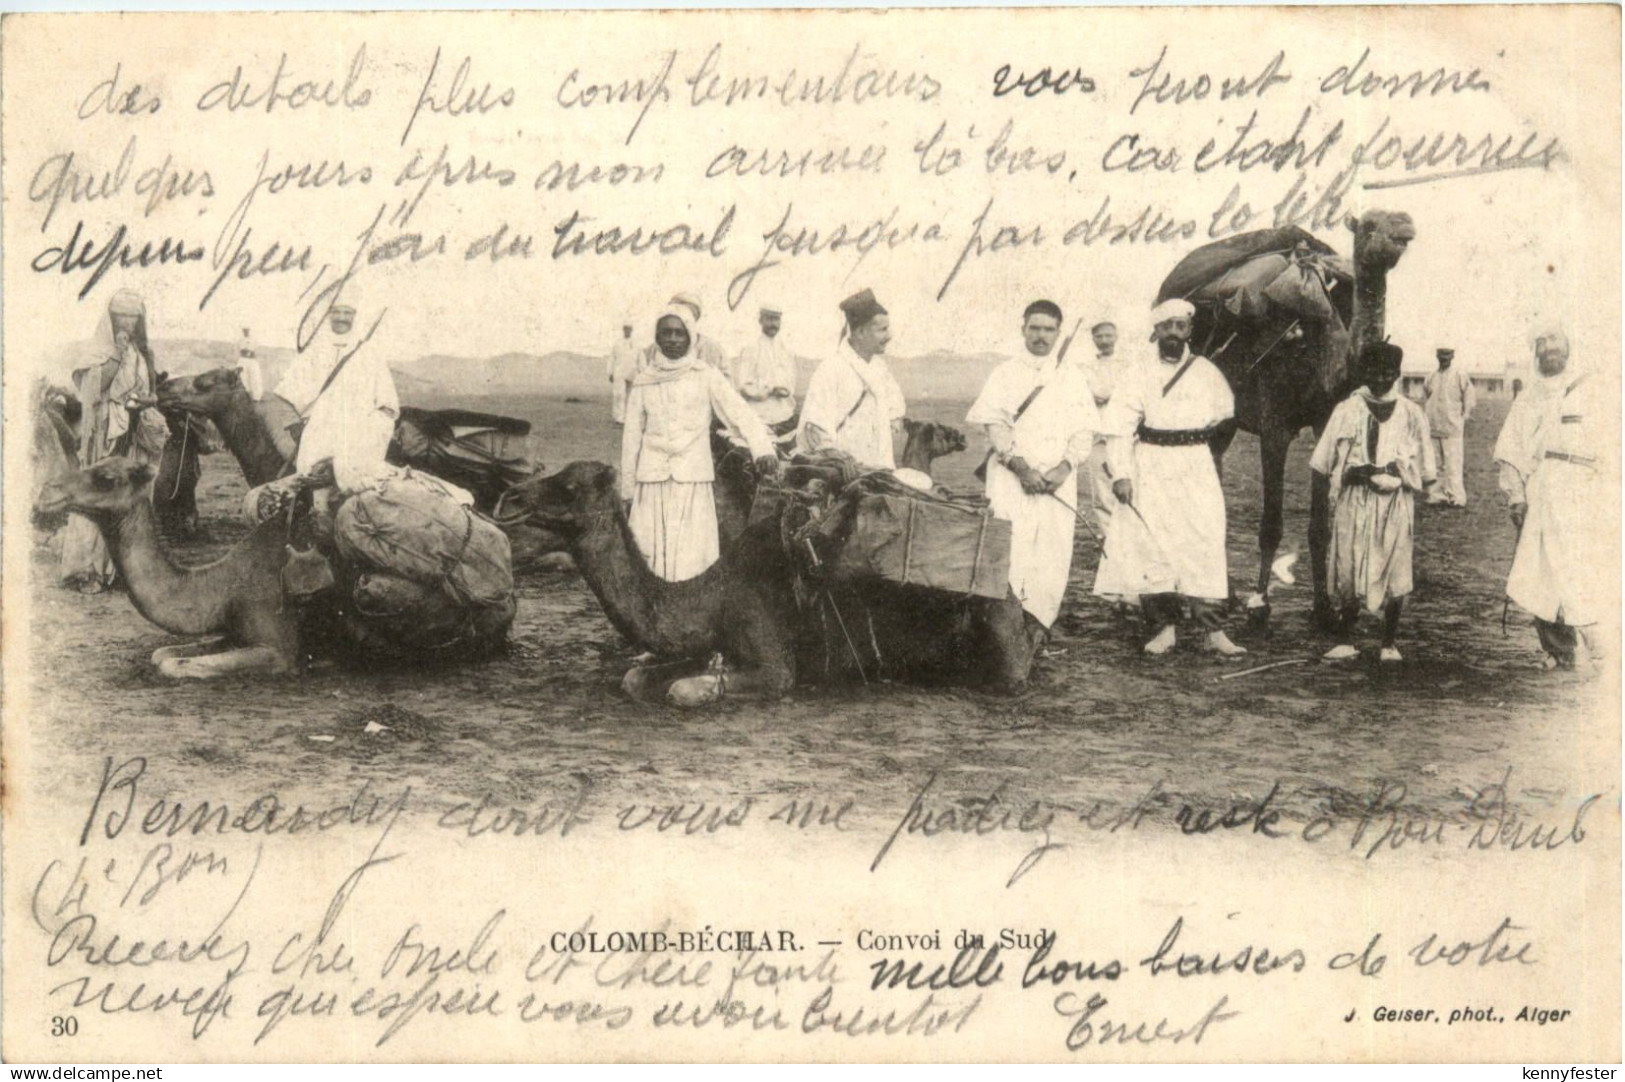 des details plus complementairs vous seront donnés
quelques jours après mon arrivée là bas, car étant fourrier
depuis peu, j'ai du travail jusqua par dessus la tête
Bernardy dont vous me parliez est resté à Bou-Denib
(4e Bon)
Recevez cher Oncle et chere tante mille bons baisers de votre
neveu qui espère vous revoir bientot Ernest
COLOMB-BÉCHAR. — Convoi du Sud
30
J. Geiser, phot., Alger
www.delcampe.net
kennyfester